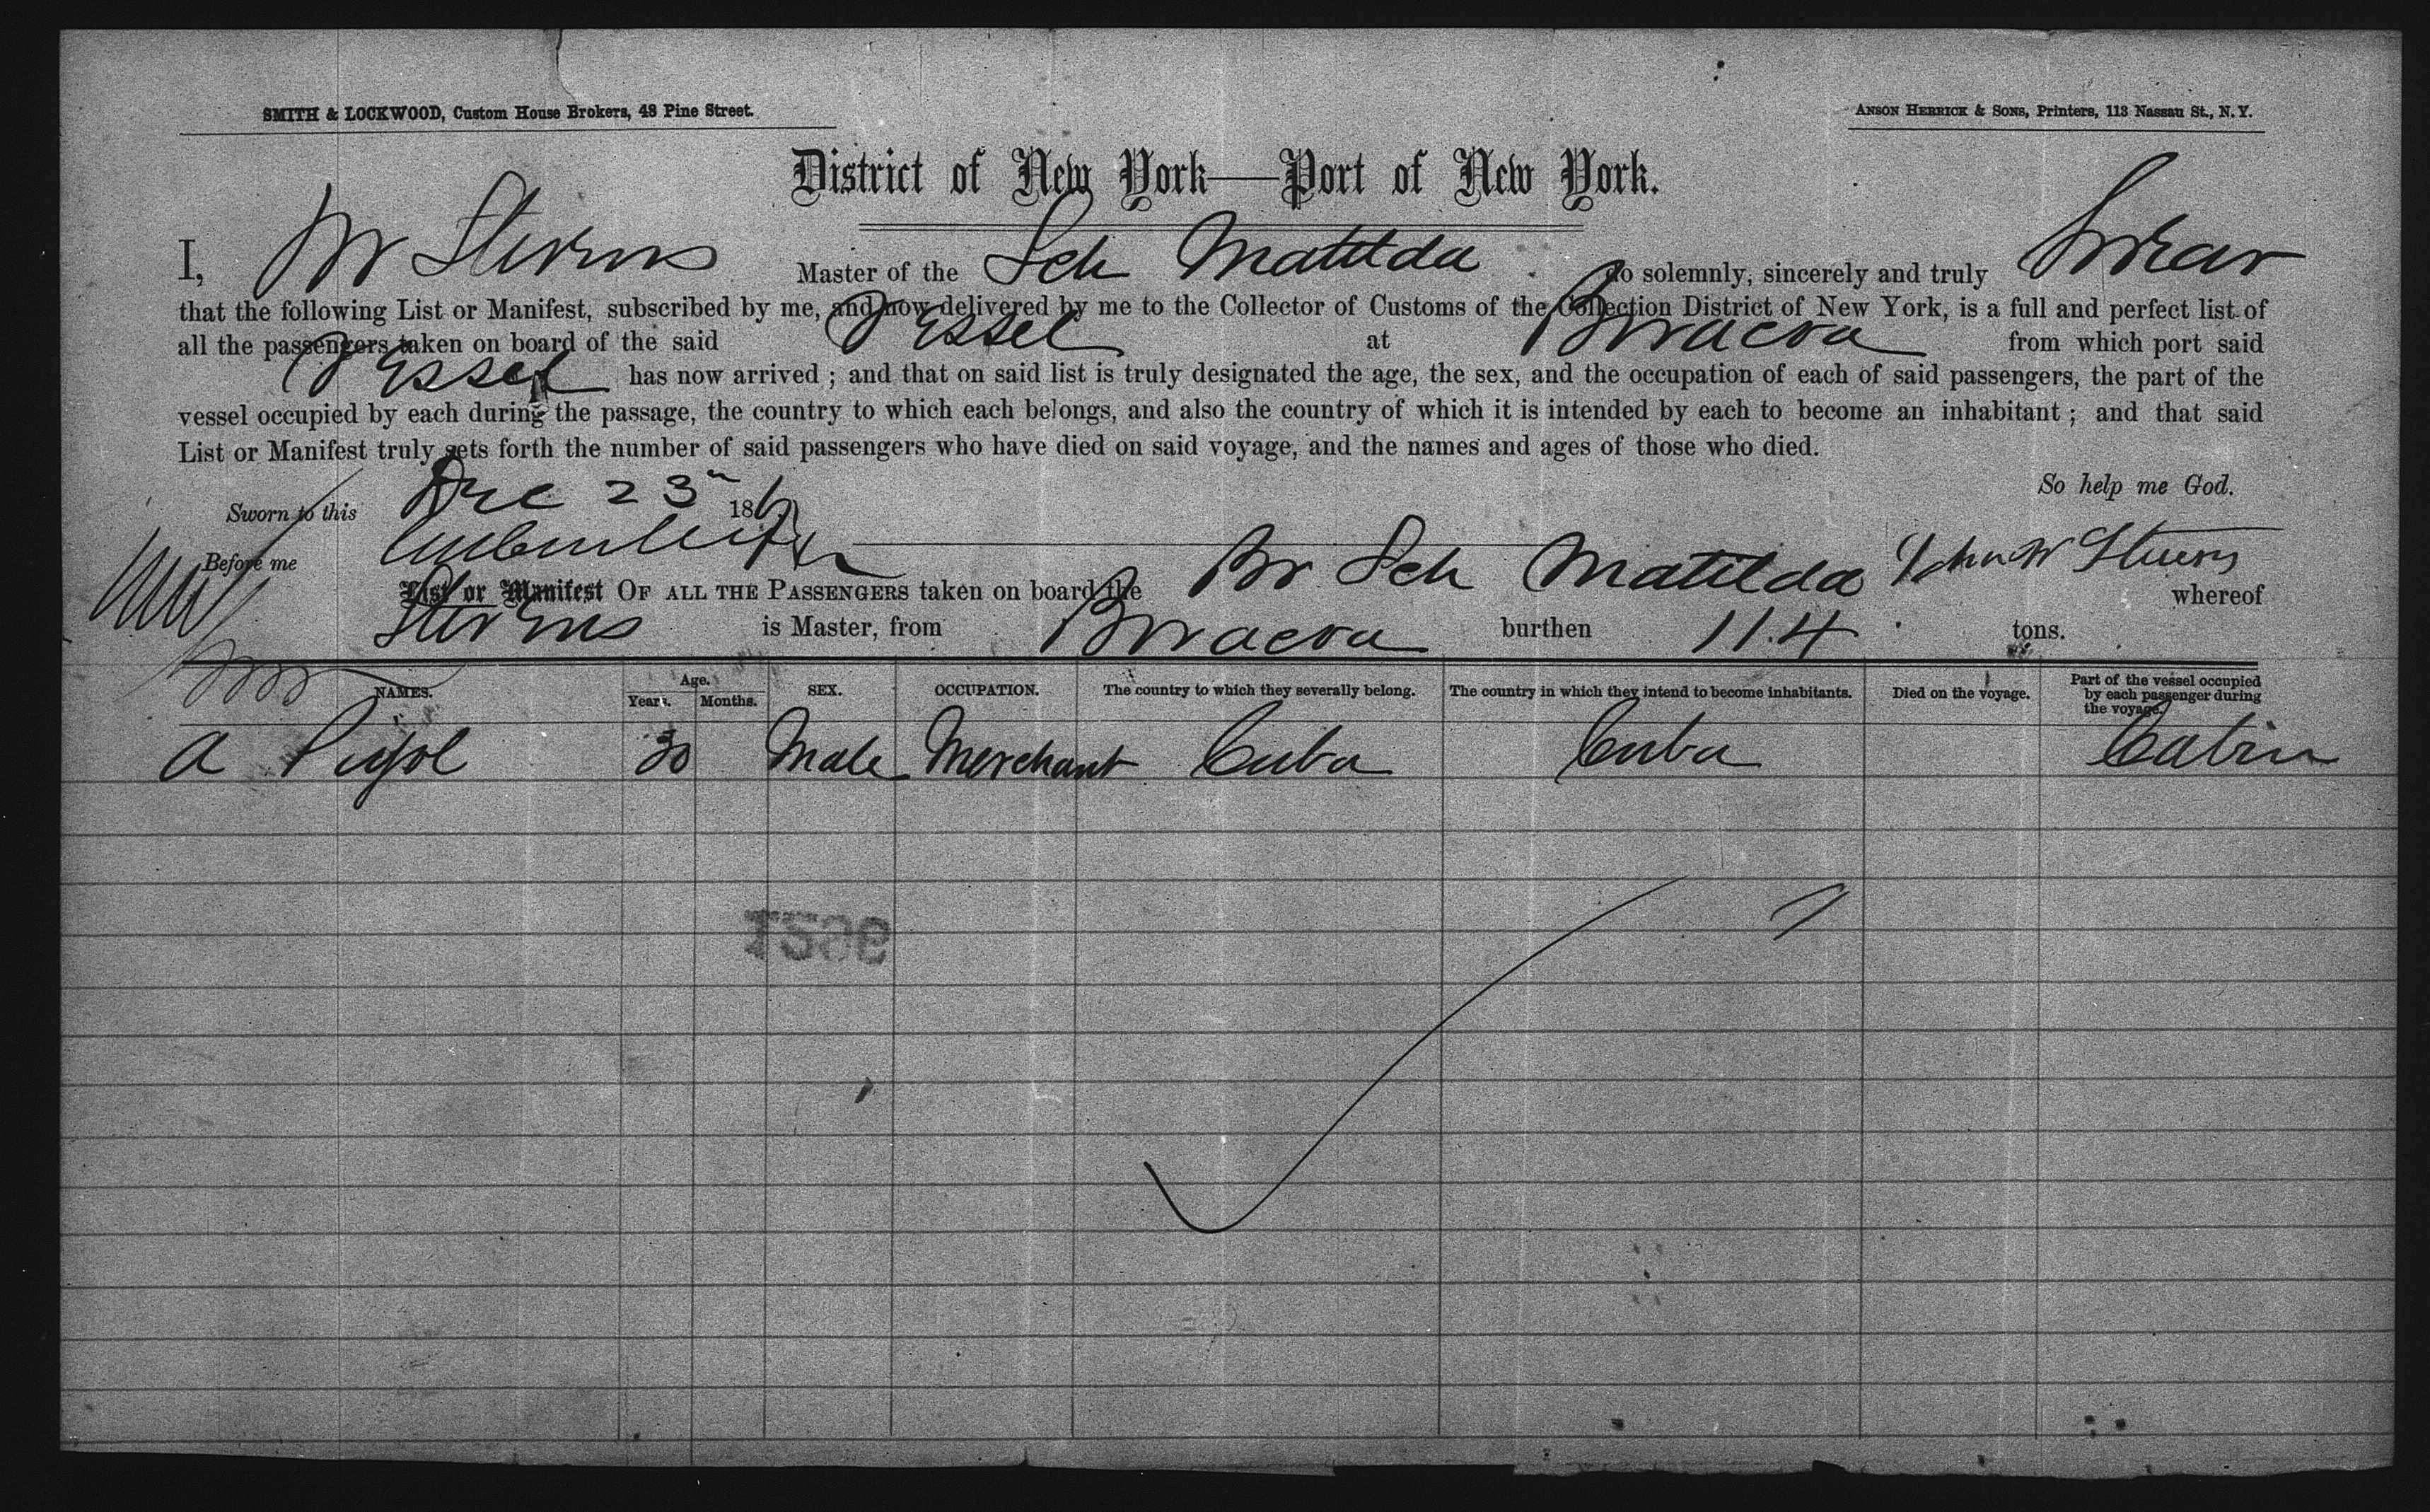 SMITH & LOCKWOOD, Custom House Brokers, 48 Pine Street.
ANSON HERRICK & SONS, Printers, 113 Nassau St., N. Y.
District of New York—Port of New York.
I, W Stevens Master of the Sch Matilda do solemnly, sincerely and truly Swear
that the following List or Manifest, subscribed by me, and now delivered by me to the Collector of Customs of the Collection District of New York, is a full and perfect list of
all the passengers taken on board of the said Vessel at Baracoa from which port said
Vessel has now arrived ; and that on said list is truly designated the age, the sex, and the occupation of each of said passengers, the part of the
vessel occupied by each during the passage, the country to which each belongs, and also the country of which it is intended by each to become an inhabitant ; and that said
List or Manifest truly sets forth the number of said passengers who have died on said voyage, and the names and ages of those who died.
So help me God.
Sworn to this Dec 23 186
Before me
John W Stevens
List or Manifest OF ALL THE PASSENGERS taken on board the Br Sch Matilda whereof
Stevens is Master, from Baracoa burthen 114 tons.
NAMES. Age. Years. Months. SEX. OCCUPATION. The country to which they severally belong. The country in which they intend to become inhabitants. Died on the voyage. Part of the vessel occupied by each passenger during the voyage.
A Pujol 30 Male Merchant Cuba Cuba Cabin